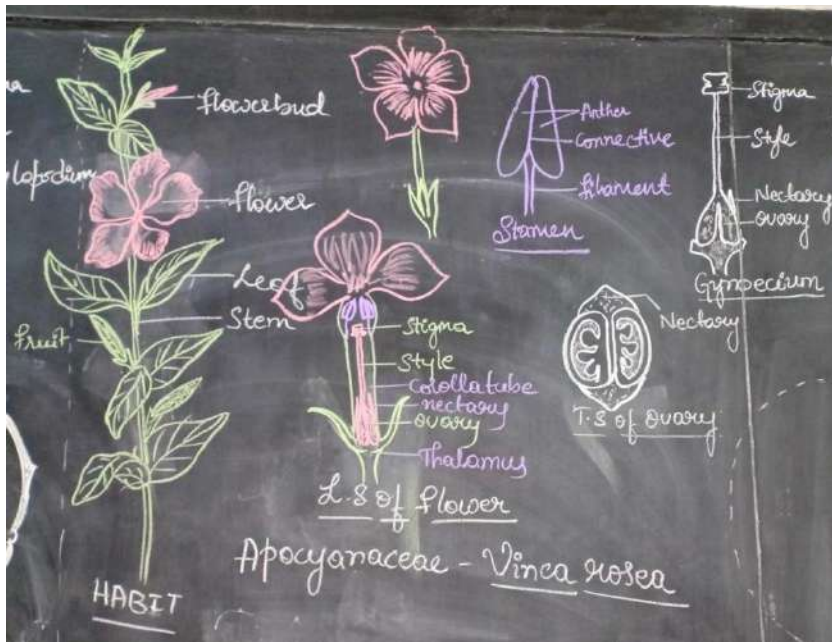 Flowerbud
Flower
Leaf
Stem
Fruit
HABIT
Stigma
Style
Corollatube
nectary
ovary
Thalamus
L.S of Flower
Anther
Connective
Filament
Stamen
Stigma
Style
Nectary
Ovary
Gynoecium
Nectary
T.S of Ovary
Apocyanaceae - Vinca rosea